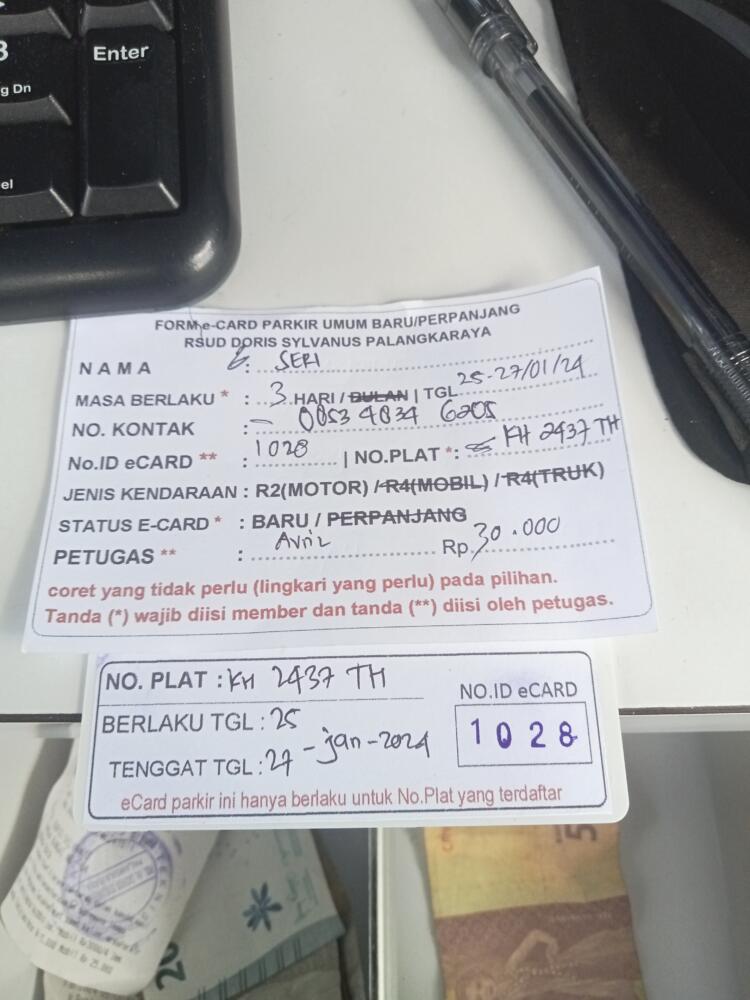 Enter
FORM e-CARD PARKIR UMUM BARU/PERPANJANG
RSUD DORIS SYLVANUS PALANGKARAYA
NAMA : SERI
MASA BERLAKU * : 3 HARI / BULAN | TGL 25-27/01/24
NO. KONTAK : 0853 4834 6205
No.ID eCARD ** : 1028 | NO.PLAT *: KH 2437 TH
JENIS KENDARAAN : R2(MOTOR) / R4(MOBIL) / R4(TRUK)
STATUS E-CARD * : BARU / PERPANJANG
PETUGAS ** : Rp. 30.000
coret yang tidak perlu (lingkari yang perlu) pada pilihan.
Tanda (*) wajib diisi member dan tanda (**) diisi oleh petugas.
NO. PLAT : KH 2437 TH
NO.ID eCARD
1028
BERLAKU TGL : 25
TENGGAT TGL : 27 - jan - 2024
eCard parkir ini hanya berlaku untuk No.Plat yang terdaftar